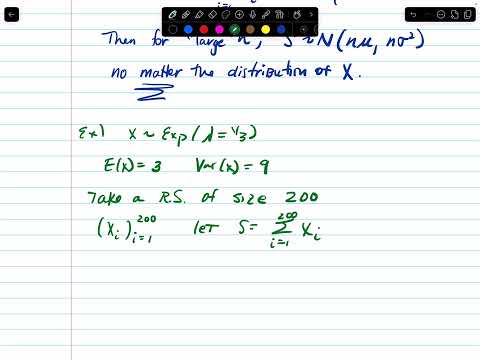 i=1
Then for "large n", S ~ N(nμ, nσ²)
no matter the distribution of X.
Ex) X ~ Exp(λ=1/3)
E(X)=3 Var(X)=9
Take a R.S. of size 200
(Xᵢ)ᵢ₌₁²⁰⁰ let S= ∑ᵢ₌₁²⁰⁰ Xᵢ